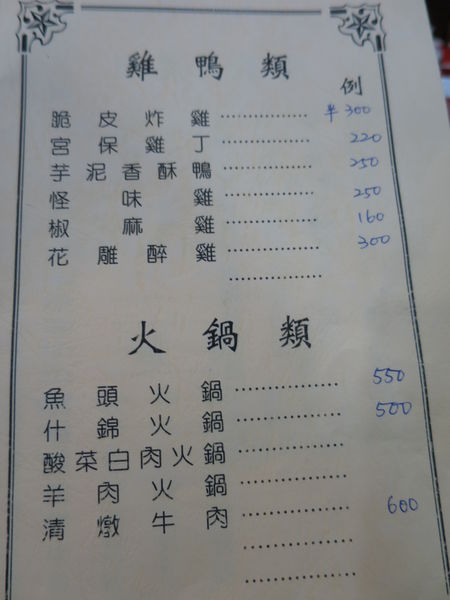 雞鴨類
例
脆皮炸雞 ................ 半 300
宮保雞丁 ................ 220
芋泥香酥鴨 ................ 250
怪味雞 ................ 250
椒麻雞 ................ 160
花雕醉雞 ................ 300
火鍋類
魚頭火鍋 ................ 550
什錦火鍋 ................ 500
酸菜白肉火鍋 ................
羊肉火鍋 ................
清燉牛肉 ................ 600